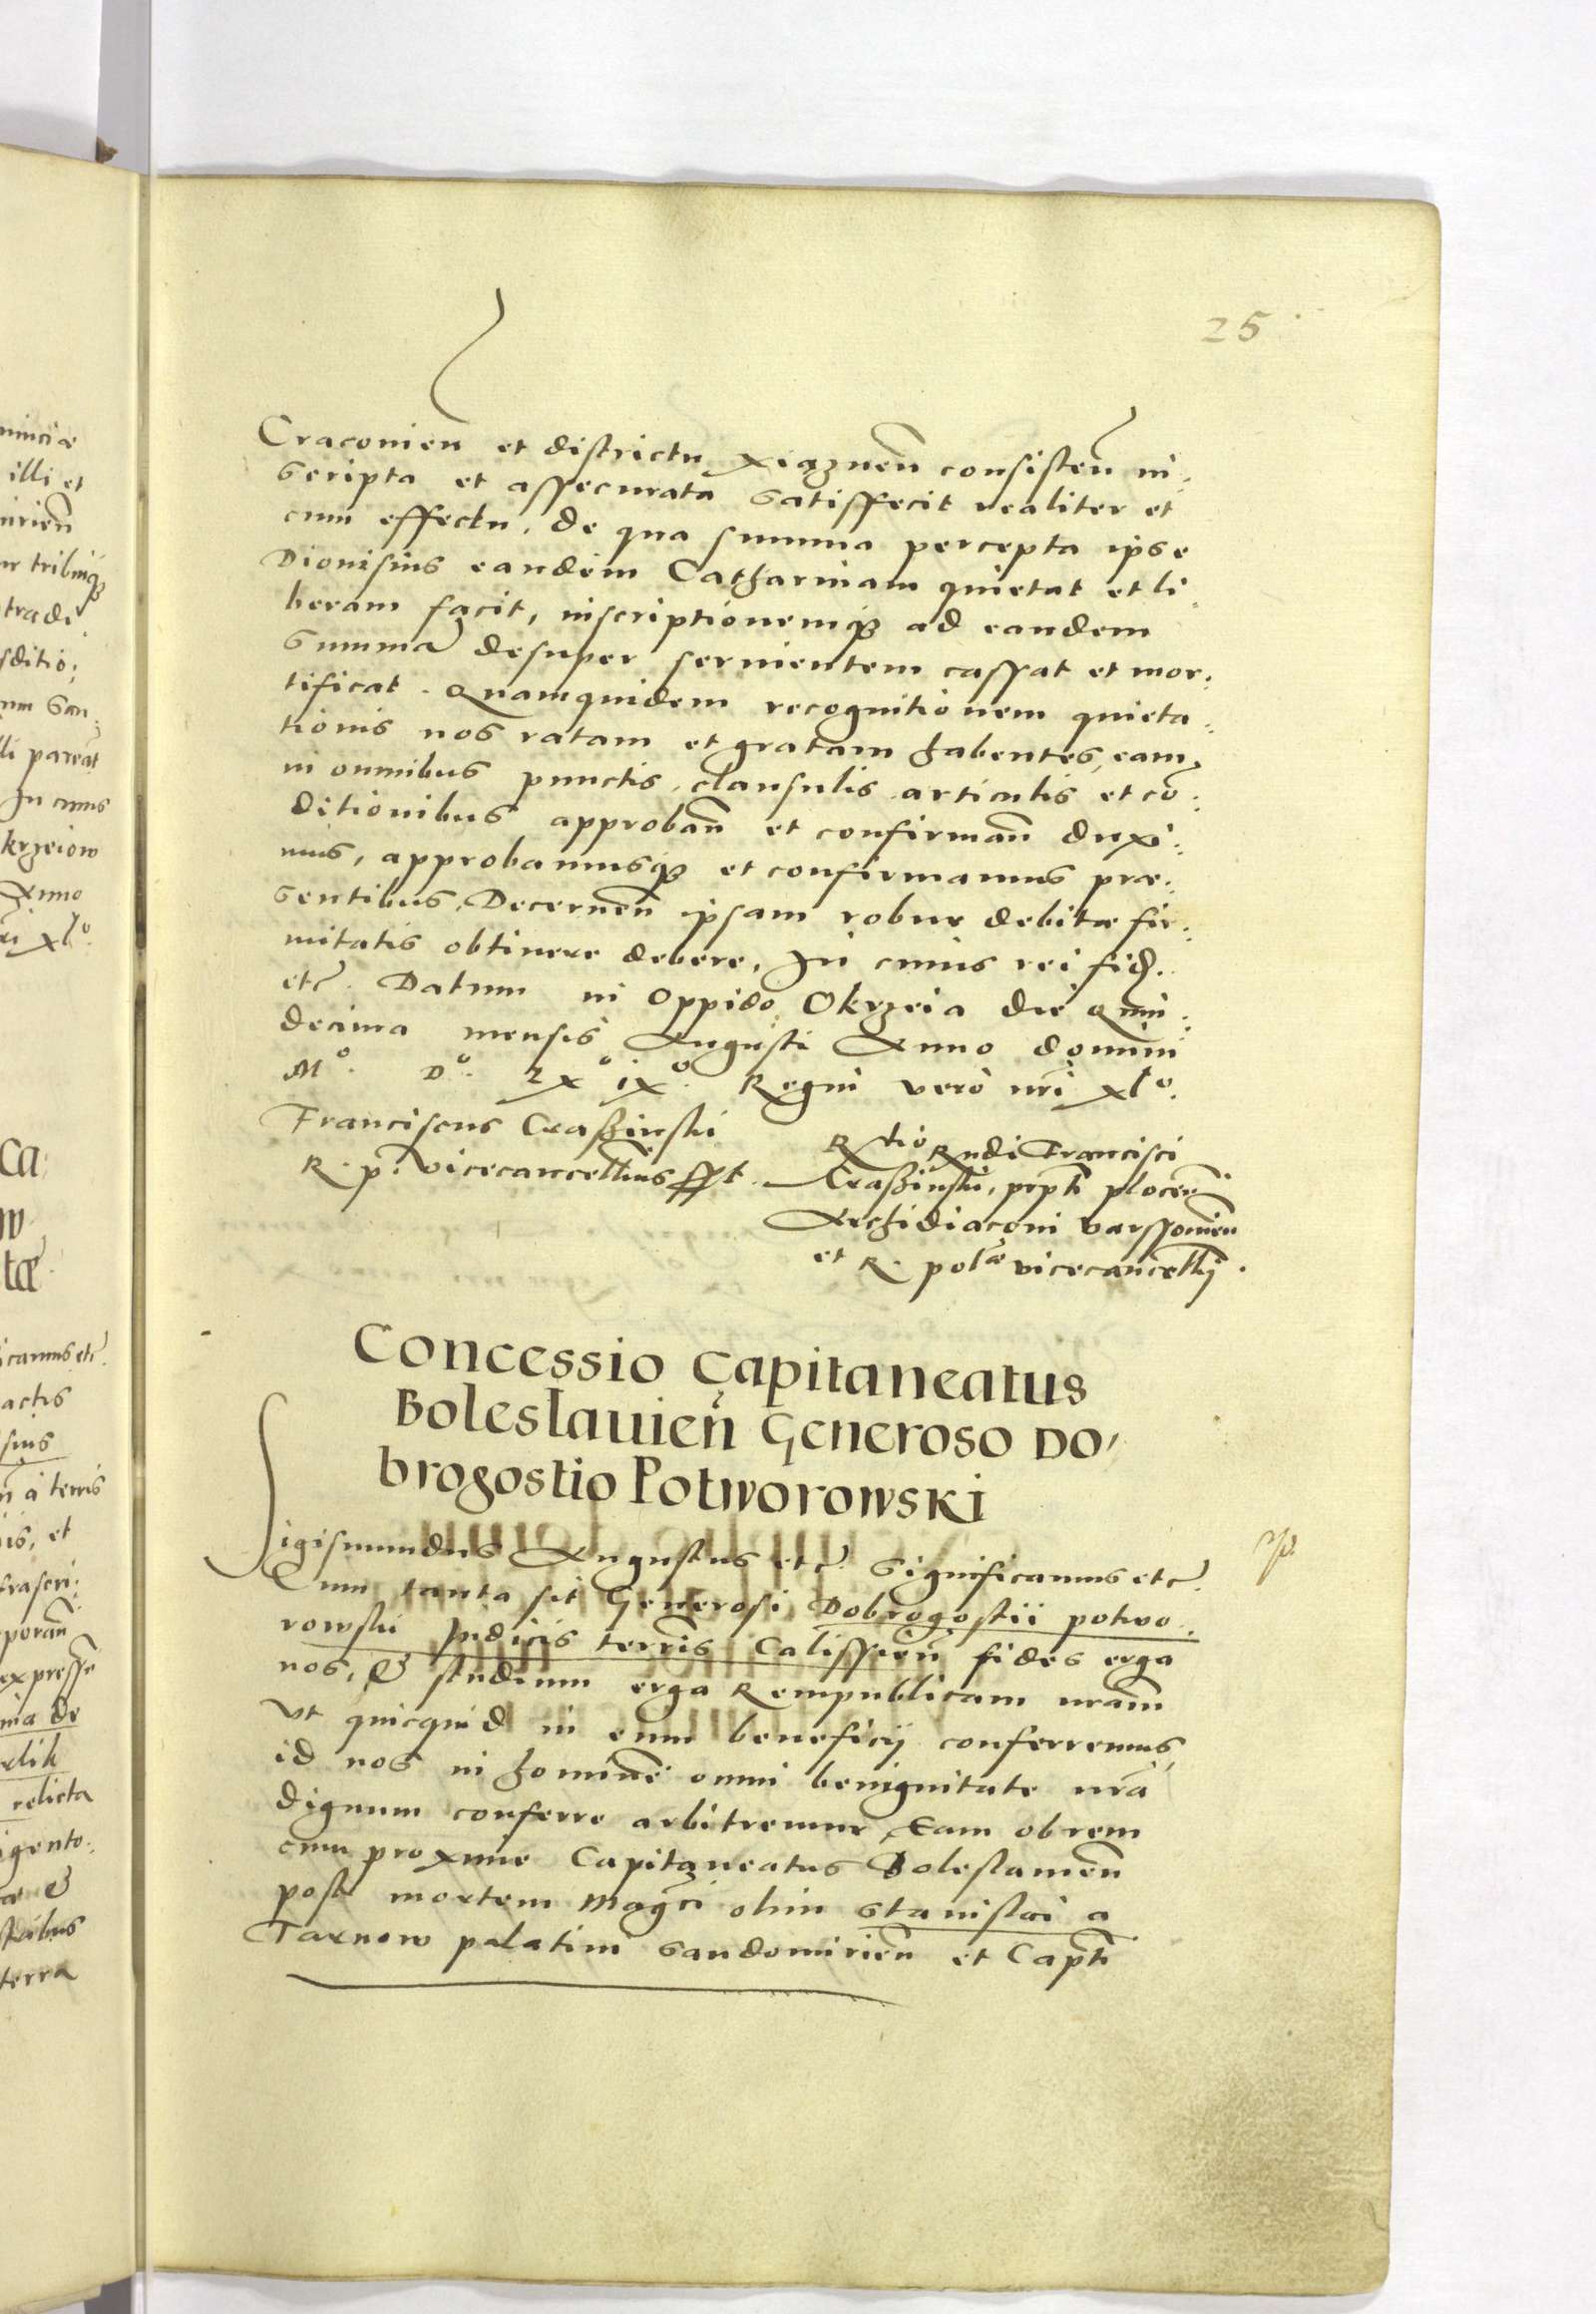 25
Craconien̄ et districtu xiążnen̄ consisten̄ in:
scripta et assecurata satisffecit realiter et
cum effectu, de qua summa percepta ipse
Dionisius eandem Catharinam quietat et li
beram facit, inscriptionemq₃ ad eandem
summā desuper seruientem cassat et mor:
tificat. Quamquidem recognitionem quieta:
tionis nos ratam et gratam habentes, eam
in omnibus punctis, clausulis articulis et cō:
ditionibus approban̄ et confirman̄ duxi:
mus, approbamusq₃ et confirmamus præ:
sentibus, Decernen̄ ipsam robur debitæ fir:
mitatis obtinere debere, In cuius rei fid.
etc. Datum in Oppido Okrzeia die quin:
decima mensis Augusti Anno domini
Mº. Dº. LXº iXº. Regni vero nr̄i xlº.
Franciscus Craßinski
R. p. vicecancellarius sst.
R̄tio Rndi Francisci
Craßinski, prpti plocen̄
Archidiaconi varssouien̄
et R. pol^æ vicecancellij.
Concessio Capitaneatus
Boleslauien̄ Generoso Do,
brogostio Potworowski
Sigismundus Augustus etc. significamus etc.
Cum tanta sit Generosi Dobrogostii potwo:
rowski Judicis terr̄is Calissien̄ fides erga
nos, & studium erga Rempublicam nr̄am
vt quicquid in eum beneficij conferremus,
id nos in hominē omni benignitate nr̄a
dignum conferre arbitremur, Eam ob rem
cum proxime Capitaneatus Boleslauien̄
post mortem Mag̃ci olim Stanislai a
Tarnow palatini Sandomirien̄ et Capt̄i